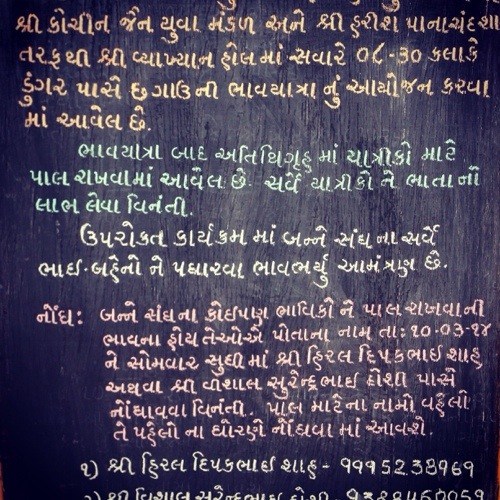 શ્રી કોચીન જૈન યુવા મંડળ અને શ્રી હરીશ પાનાચંદ શા
તરફથી શ્રી વ્યાખ્યાન હોલ માં સવારે ૦૮-૩૦ કલાકે
ડુંગર પાસે છ ગાઉ ની ભાવયાત્રા નું આયોજન કરવા
માં આવેલ છે.
ભાવયાત્રા બાદ અતિથિગૃહ માં યાત્રીકો માટે
પાલ રાખવામાં આવેલ છે. સર્વે યાત્રીકો ને ભાતા નો
લાભ લેવા વિનંતી.
ઉપરોકત કાર્યક્રમ માં બન્ને સંઘ ના સર્વે
ભાઇ-બહેનો ને પધારવા ભાવભર્યુ આમંત્રણ છે.
નોંધ: બન્ને સંઘના કોઇપણ ભાવિકો ને પાલ રાખવાની
ભાવના હોય તેઓએ પોતાના નામ તા: ૧૦-૦૩-૧૪
ને સોમવાર સુધી માં શ્રી હિરલ દિપકભાઇ શાહ
અથવા શ્રી વીશાલ સુરેન્દ્રભાઇ દોશી પાસે
નોંધાવવા વિનંતી. પાલ માટેના નામો વહેલો
તે પહેલો ના ધોરણે નોંધવા માં આવશે.
૧) શ્રી હિરલ દિપકભાઇ શાહ -
૨) શ્રી વિશાલ સુરેન્દ્રભાઇ દોશી